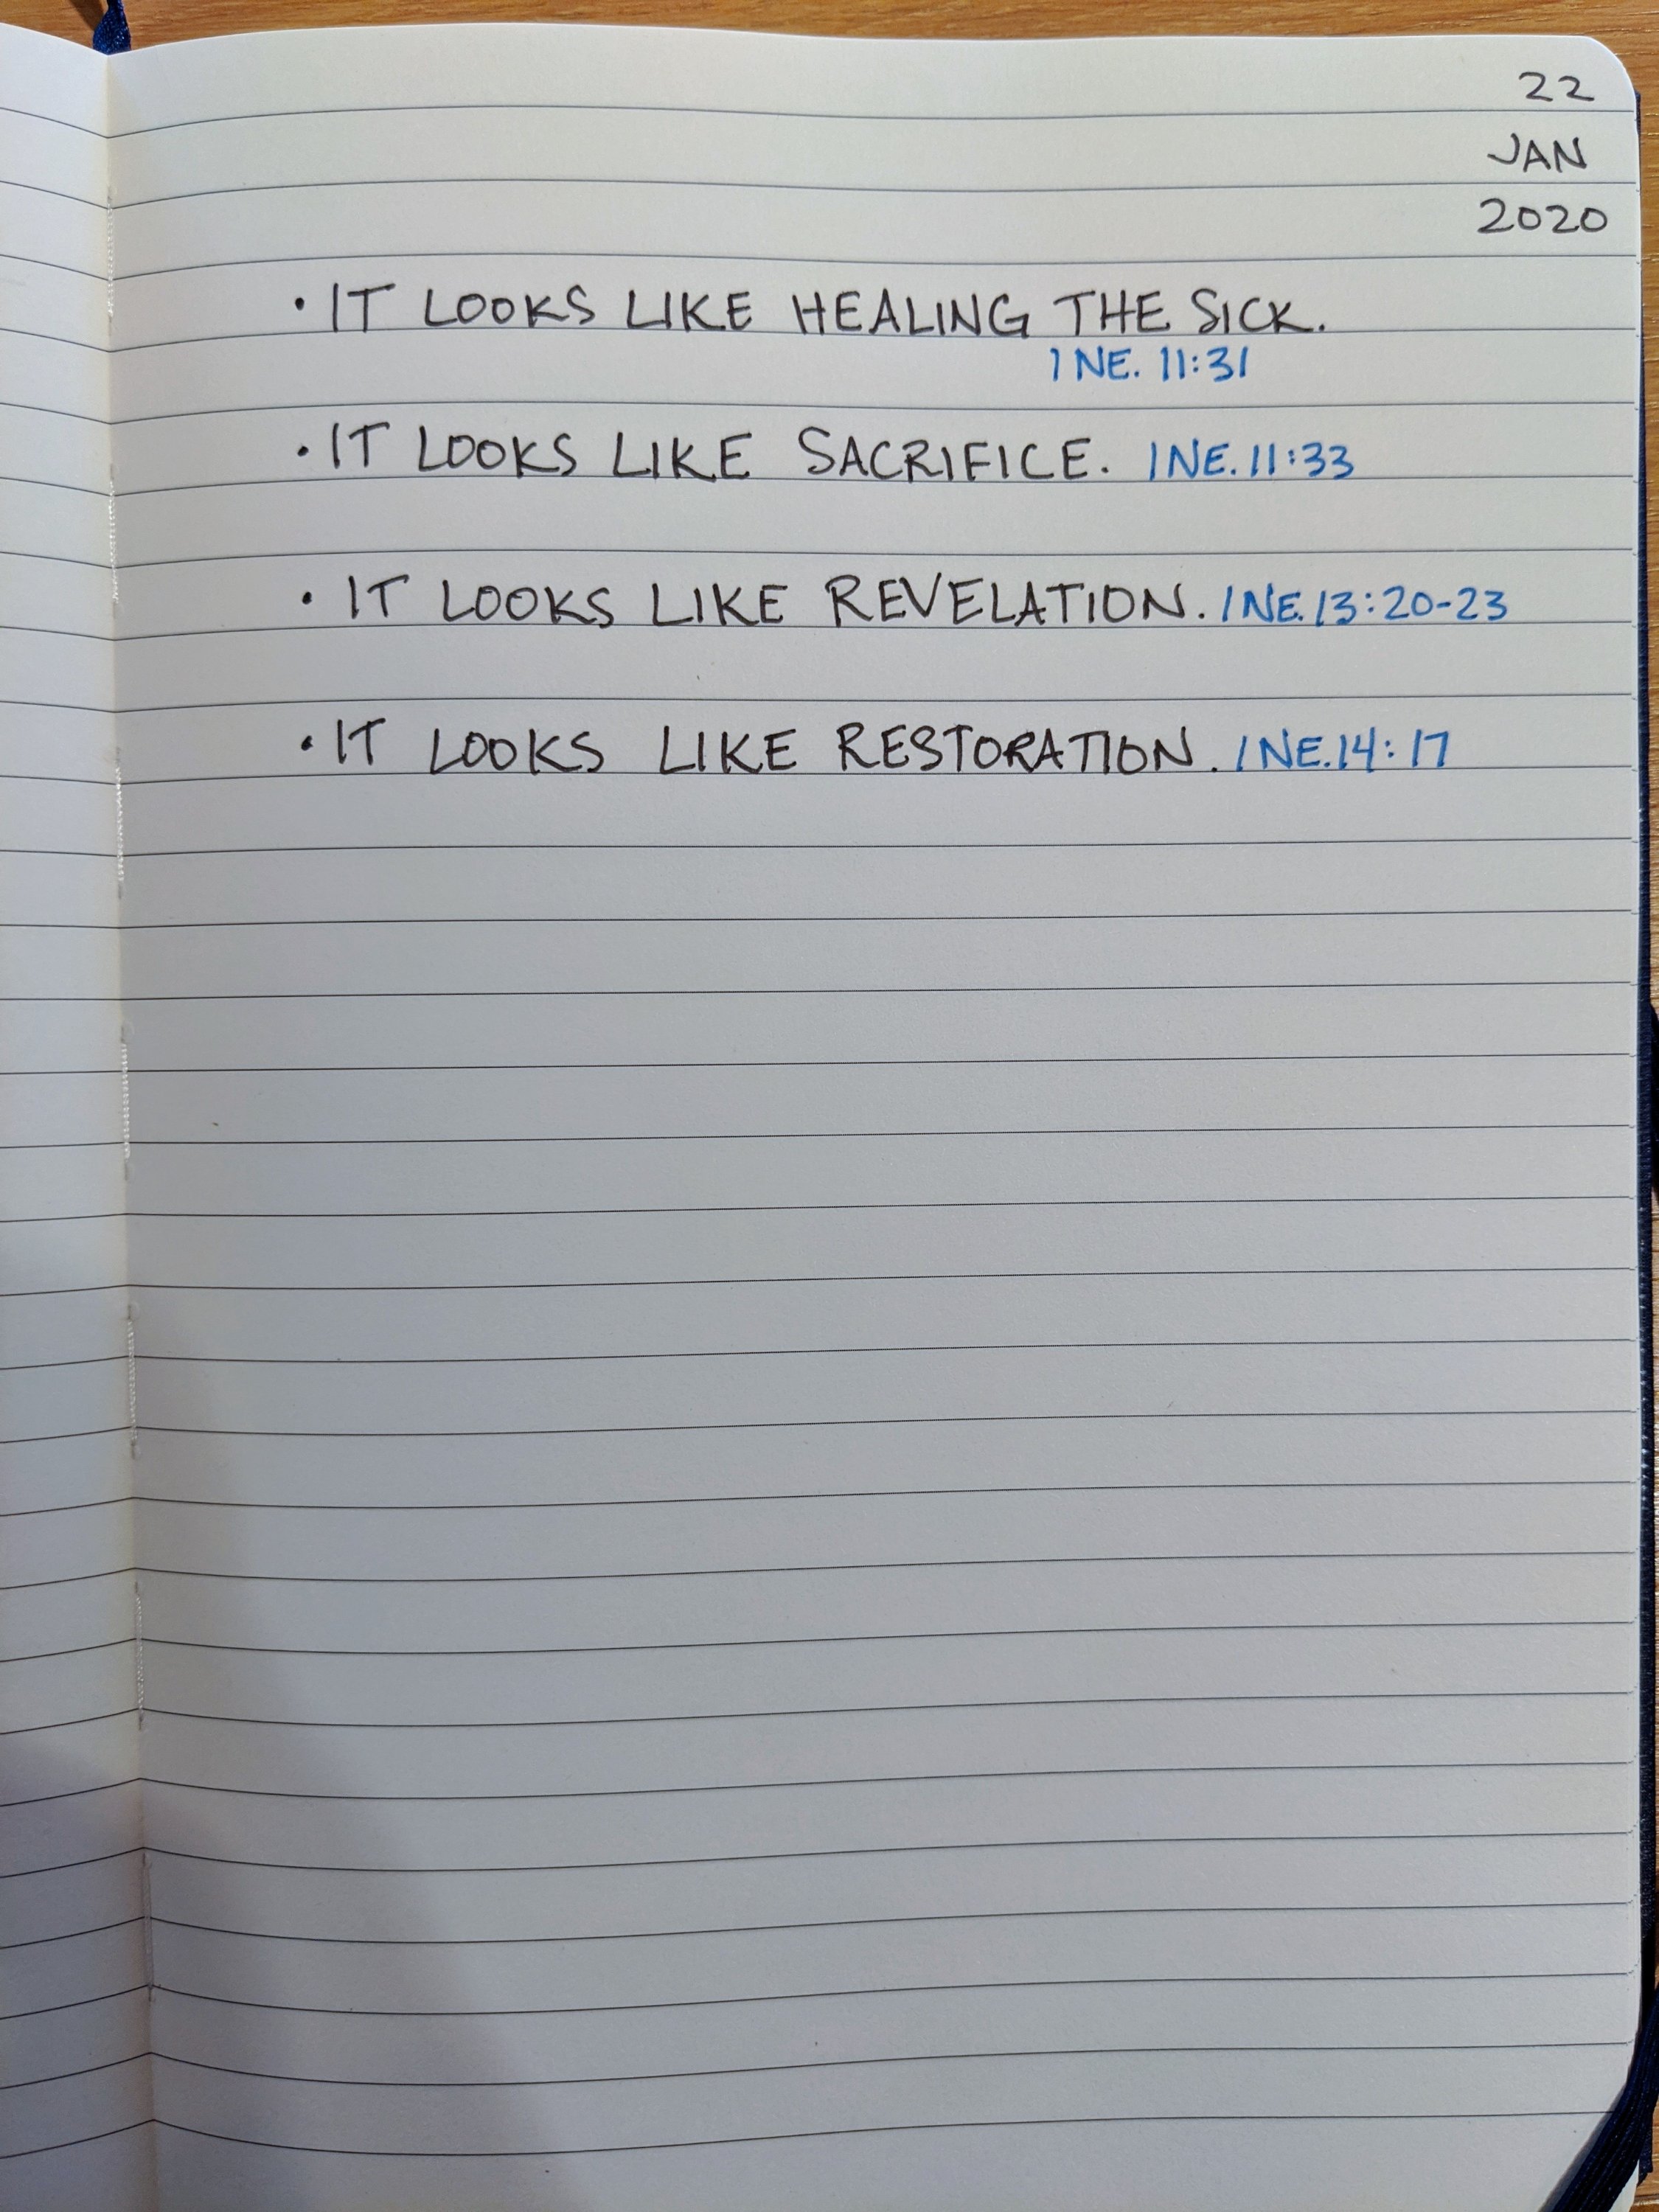 22
JAN
2020
• IT LOOKS LIKE HEALING THE SICK.
1 NE. 11:31
• IT LOOKS LIKE SACRIFICE. 1 NE. 11:33
• IT LOOKS LIKE REVELATION. 1 NE. 13:20-23
• IT LOOKS LIKE RESTORATION. 1 NE. 14:17